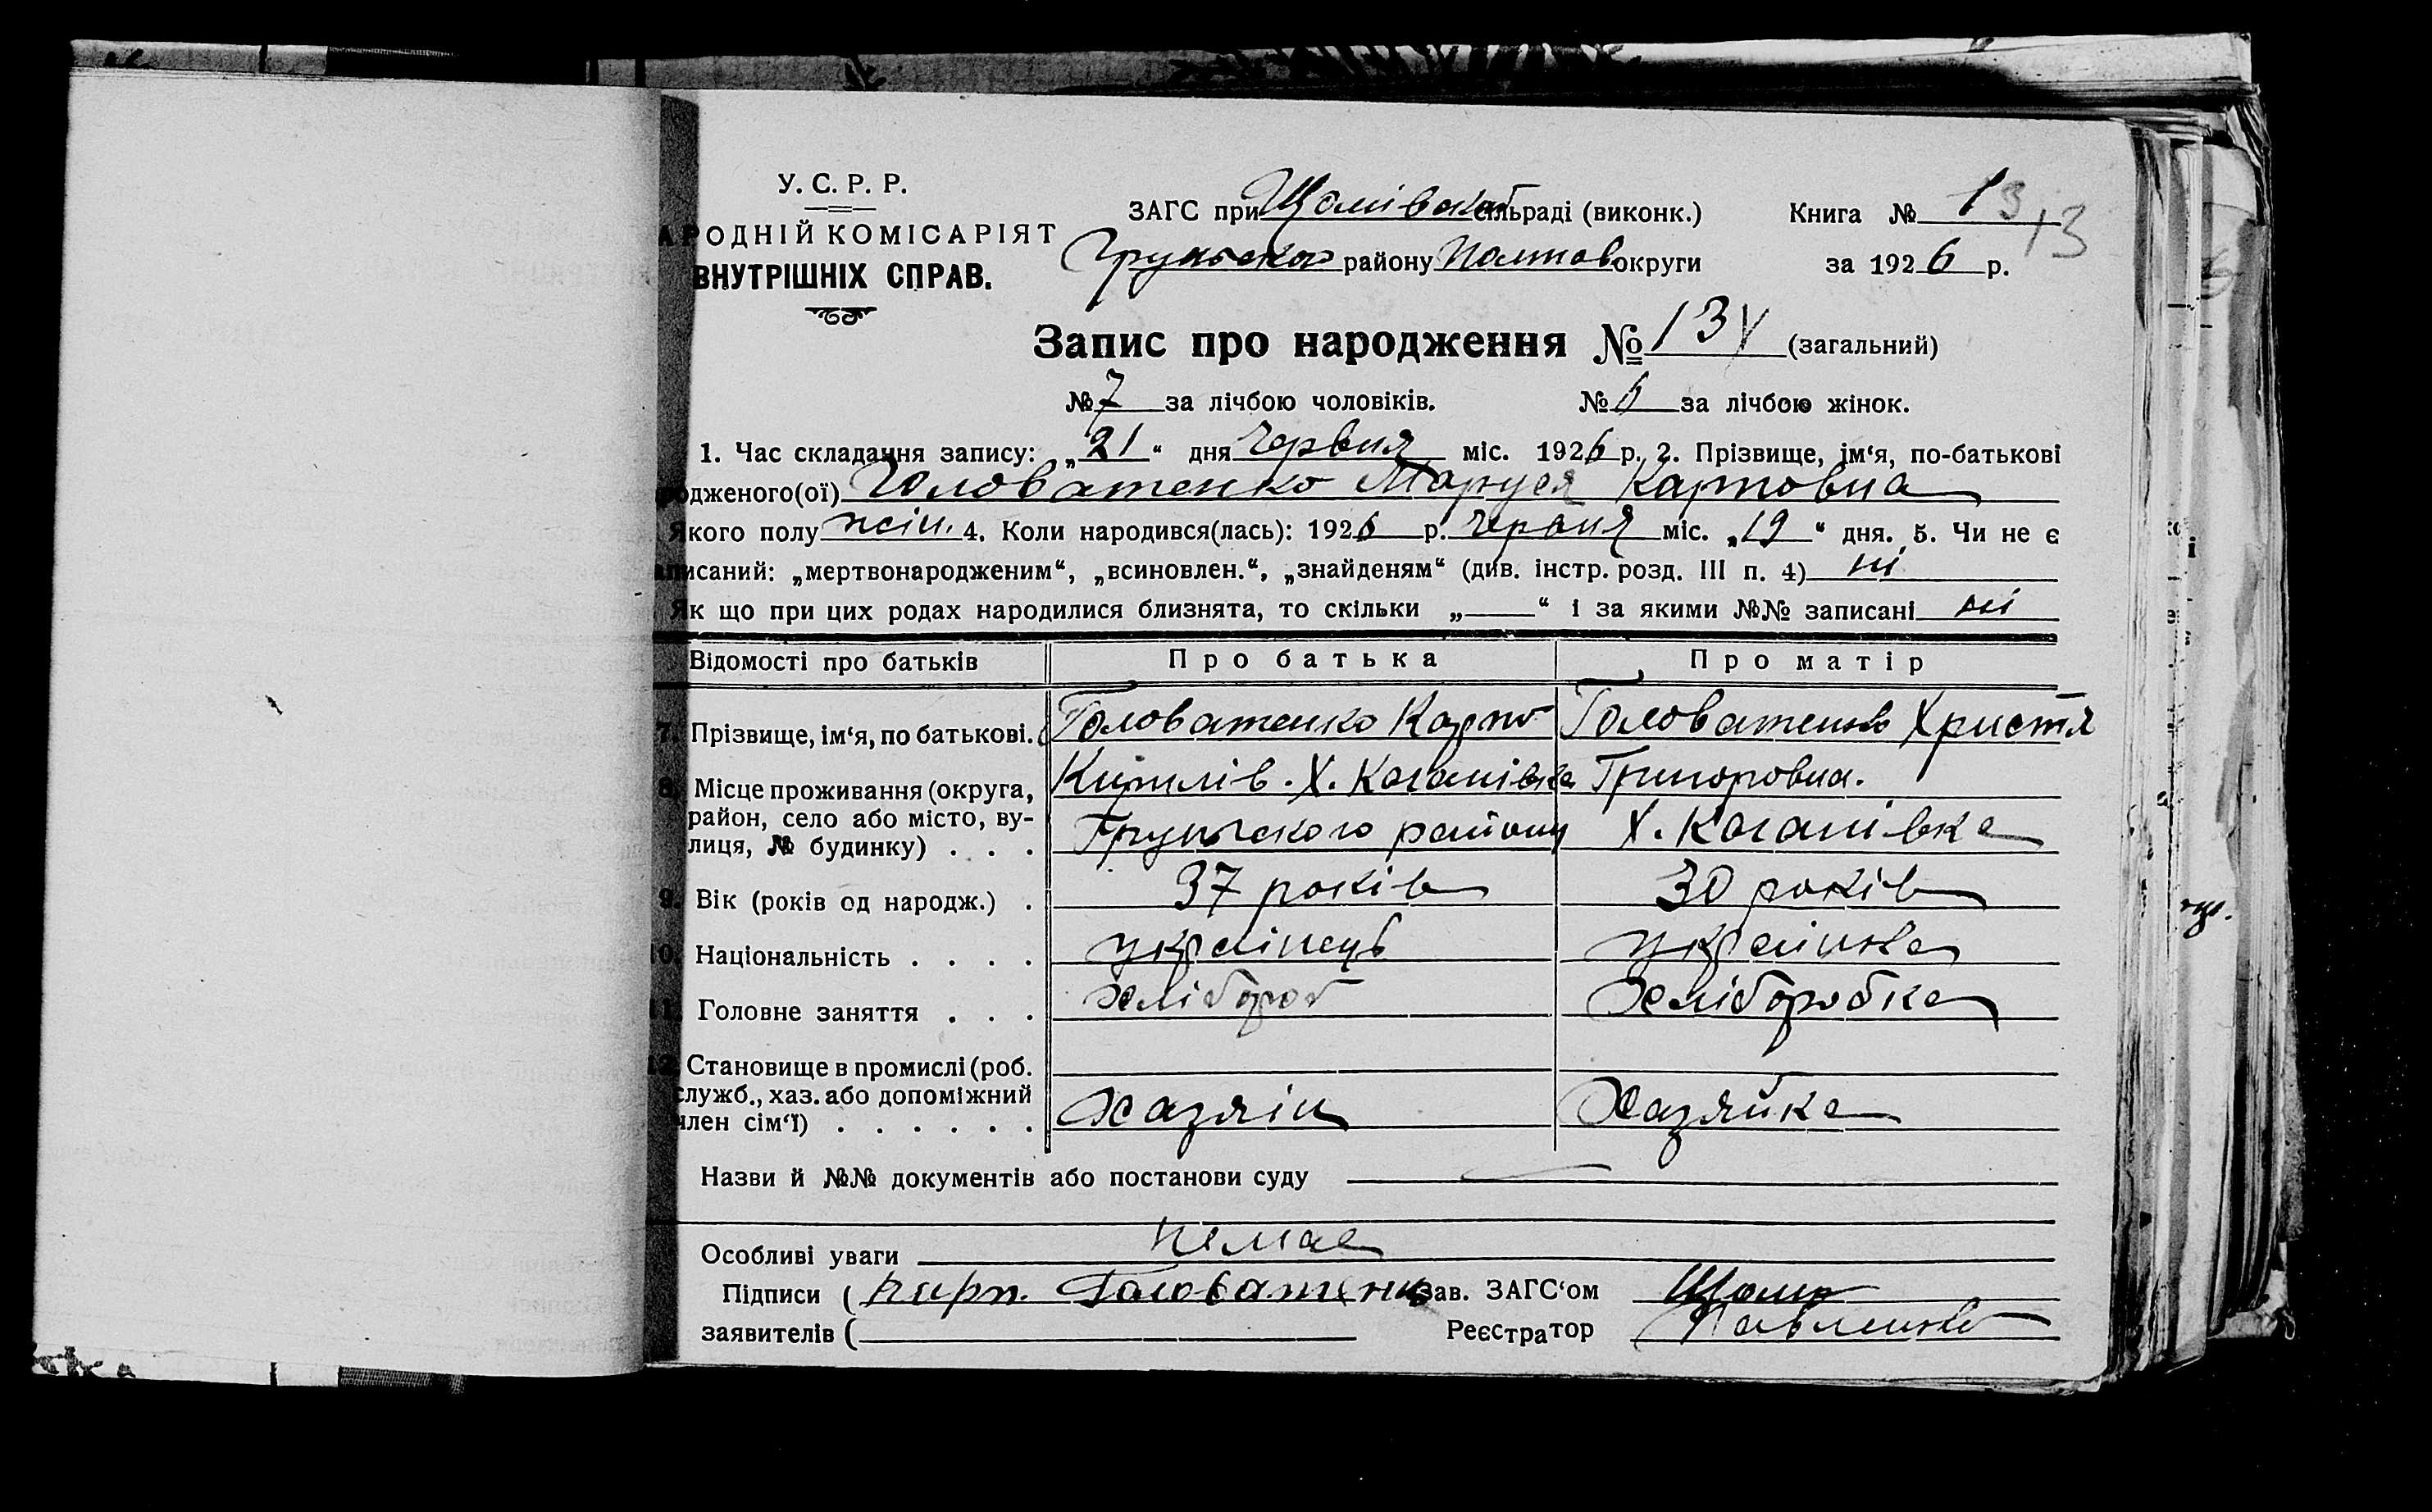 У. С. Р. Р.
АРОДНІЙ КОМІСАРІЯТ
ВНУТРІШНІХ СПРАВ.
ЗАГС при сільраді (виконк.)
Книга № 13
13
Грунського району Полтав округи
за 1926 р.
Запис про народження № 13 (загальний)
№ 7 за лічбою чоловіків. № 6 за лічбою жінок.
1. Час складання запису: „21“ дня червня міс. 1926 р. 2. Прізвище, ім‘я, по-батькові
родженого(ої) Головатенко Маруся Карповна
Якого полу жін. 4. Коли народився(лась): 1926 р. червня міс. „19“ дня. 5. Чи не є
аписаний: „мертвонародженим“, „всиновлен.“, „знайденям“ (див. інстр. розд. III п. 4) ні
Як що при цих родах народилися близнята, то скільки „ “ і за якими №№ записані ні
Відомості про батьків Про батька Про матір
7. Прізвище, ім‘я, по батькові. Головатенко Карпо Головатенко Христя
Кирилів. Х. Каганівка Григоровна.
8. Місце проживання (округа,
район, село або місто, ву-
лиця, № будинку) . . . Грунського району Х. Каганівка
9. Вік (років од народж.) . 37 років 30 років
10. Національність . . . . українець українка
11. Головне заняття . . . хлібороб Хліборобка
12. Становище в промислі (роб.
служб., хаз. або допоміжний
член сім‘ї) . . . . . . Хазяін Хазяйка
Назви й №№ документів або постанови суду
Особливі уваги немає
Підписи ( Карп. Головатенко зав. ЗАГС‘ом
заявителів ( Реєстратор Павленко